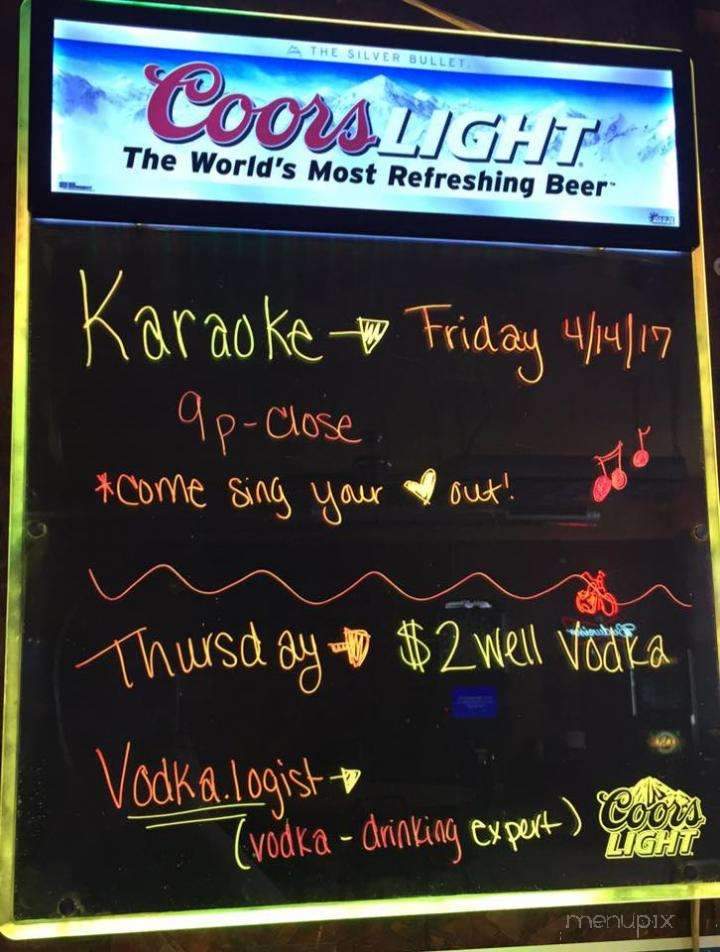 THE SILVER BULLET
Coors LIGHT
The World's Most Refreshing Beer™
Karaoke → Friday 4/14/17
9p-close
*come sing your ♥ out!
Thursday → $2 well Vodka
Vodka.logist →
(vodka-drinking expert)
Coors
LIGHT
menupix